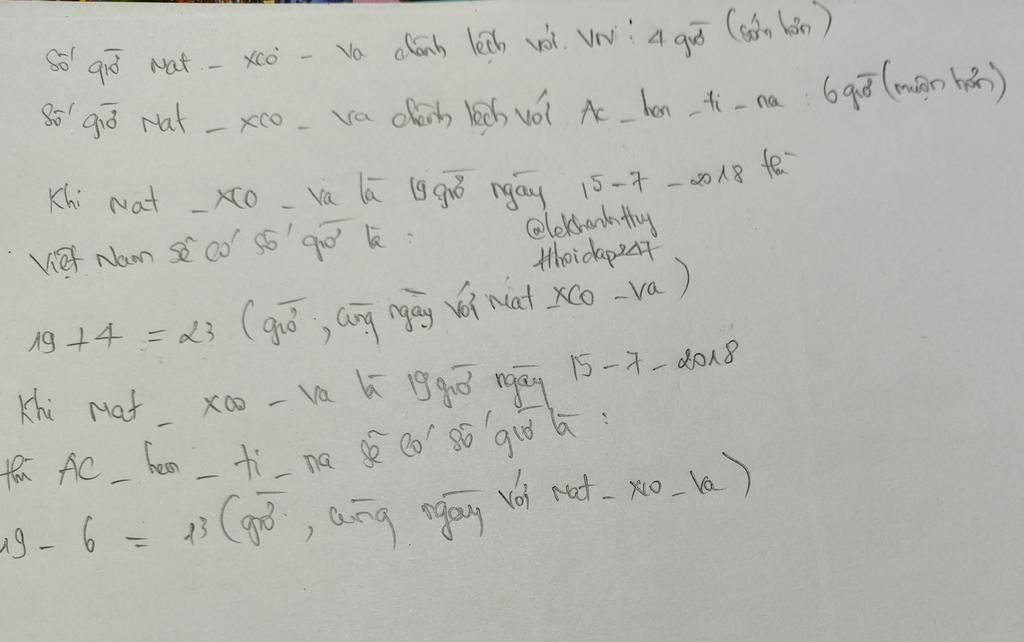 Số giờ Mat - xcơ - va chênh lệch với VN : 4 giờ (sớm hơn)
Số giờ Mat - xcơ - va chênh lệch với Ac - hen - ti - na : 6 giờ (muộn hơn)
Khi Mat - xcơ - va là 19 giờ ngày 15 - 7 - 2018 thì
Việt Nam sẽ có số giờ là :
@lekhanhthuy
#hoidap247
19 + 4 = 23 (giờ, cùng ngày với Mat - xcơ - va)
Khi Mat - xcơ - va là 19 giờ ngày 15 - 7 - 2018
thì Ac - hen - ti - na sẽ có số giờ là :
19 - 6 = 13 (giờ, cùng ngày với Mat - xcơ - va)